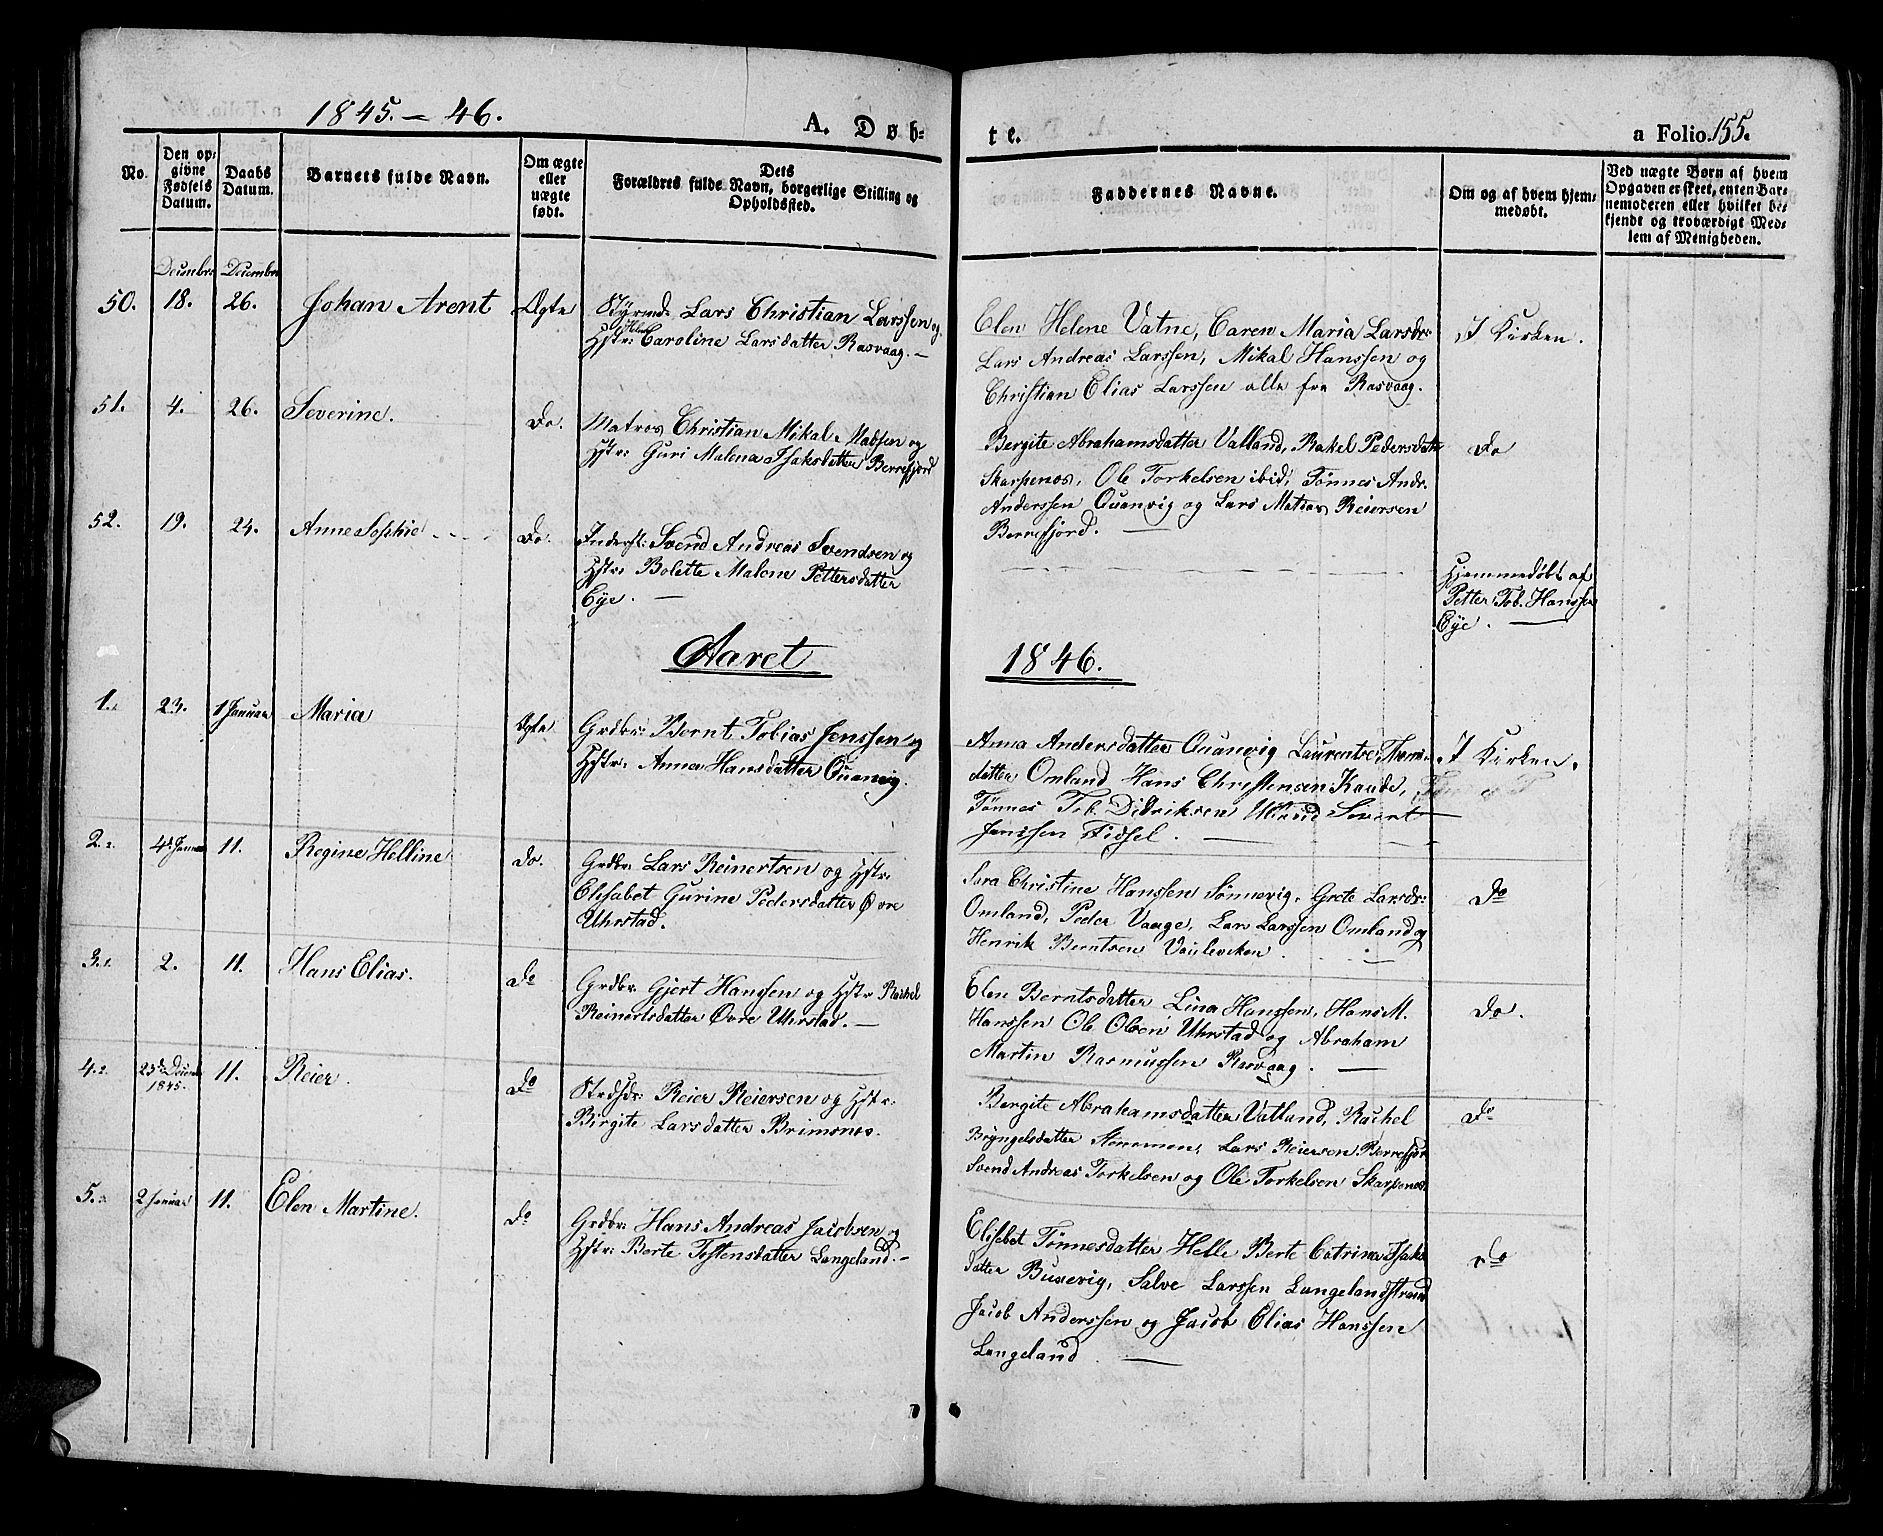 1845. – 46.
A. Døb-
te.
a Folio. 155.
No.
Den op-
givne
Fødsels
Datum.
Daabs
Datum.
Barnets fulde Navn.
Om ægte
eller
uægte
født.
Dets
Forældres fulde Navn, borgerlige Stilling og
Opholdssted.
Faddernes Navne.
Om og af hvem hjem-
medøbt.
Ved uægte Børn af hvem
Opgaven er skeet, enten Bar-
nemoderen eller hvilket be-
kjendt og troværdigt Med-
lem af Menigheden.
December December
50. 18. 26. Johan Arent Ægte
Styrmd. Lars Christian Larssen og
Hstr: Caroline Larsdatter Rasvaag. –
Elen Helene Vatne, Caren Maria Larsdr:
Lars Andreas Larssen, Mikal Hanssen og
Christian Elias Larssen alle fra Rasvaag.
I Kirken.
51. 4. 26. Severine. Do.
Matros Christian Mikal Madsen og
Hstr: Guri Malena Isaksdatter Berrefjord
Bergite Abrahamsdatter Vatland, Rakel Pedersdatr
Skarpenos, Ole Torkelsen ibid, Tønnes Andr.
Anderssen Quanvig og Lars Matias Reiersen
Berrefjord. —
Do
52. 19. 24. Anne Sophie Do.
Inderst: Svend Andreas Svendsen og
Hstr: Bolette Malene Pettersdatter
Eye. —
Hjemmedøbt af
Petter Tob. Hanssen
Eye. —
Aaret 1846.
1. 23. 1 Januar Maria Ægte
Grdbr: Bernt Tobias Jenssen og
Hstr: Anna Hansdatter Quanvig.
Anna Andersdatter Quanvig Laurentse
datter Omland Hans Christensen Kaade,
Tønnes Tob. Didriksen Sivert
Janssen Fidsel. —
I Kirken.
2. 4d Januar 11. Regine Helline Do.
Grdbr: Lars Reinertsen og Hstr:
Elisabet Gurine Pedersdatter Øvre
Uhrstad.
Sara Christine Hanssen Sønnevig, Grete Larsdr:
Omland, Peder Vaage, Lars Larssen Omland og
Henrik Berntsen
Do
3. 2. 11. Hans Elias. Do
Grdbr: Gjert Hanssen og Hstr Rachel
Reinertsdatter Øvre Uhrstad. —
Elen Berntsdatter Lina Hanssen, Hans M.
Hanssen Ole Olsen Uhrstad og Abraham
Martin Rasmussen Rasvaag. —
Do.
4. 23de Decemb 11. Reier. Do
1845.
Strdsdr: Reier Reiersen og Hstr:
Birgite Larsdatter Brimsnes.
Bergite Abrahamsdatter Vatland, Rachel
Bryngelsdatter Stemmen, Lars Reiersen Berrefjor
Svend Andreas Torkelsen og Ole Torkelsen Skarpenos
Do
5. 2 Januar 11. Elen Martine. Do
Grdbr: Hans Andreas Jacobsen og
Hstr: Berte Testensdatter Langeland. –
Elisabet Tønnesdatter Helle Berte Catrina Isaks
datter Buxevig, Salve Larssen Langelandstrand
Jacob Anderssen og Jacob Elias Hanssen
Langeland. —
Do